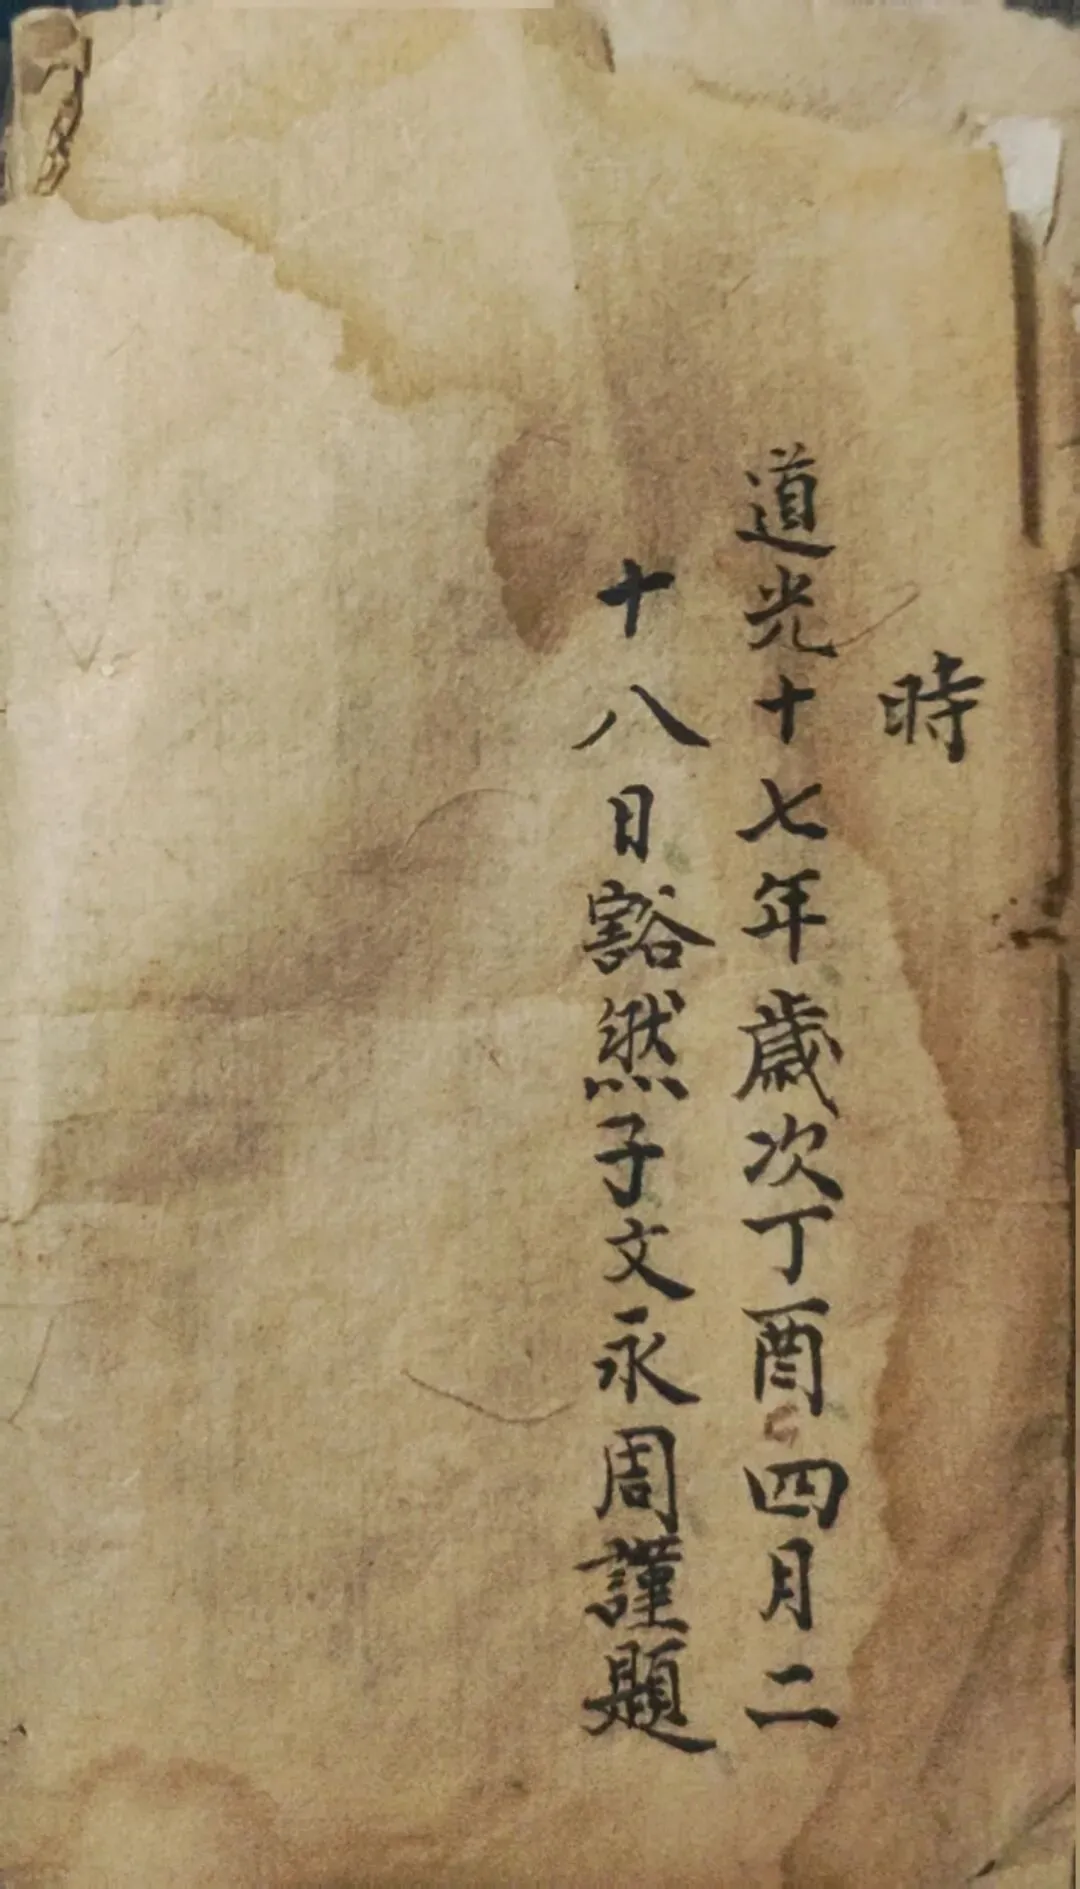 時
道光十七年歲次丁酉四月二
十八日豁然子文永周謹題